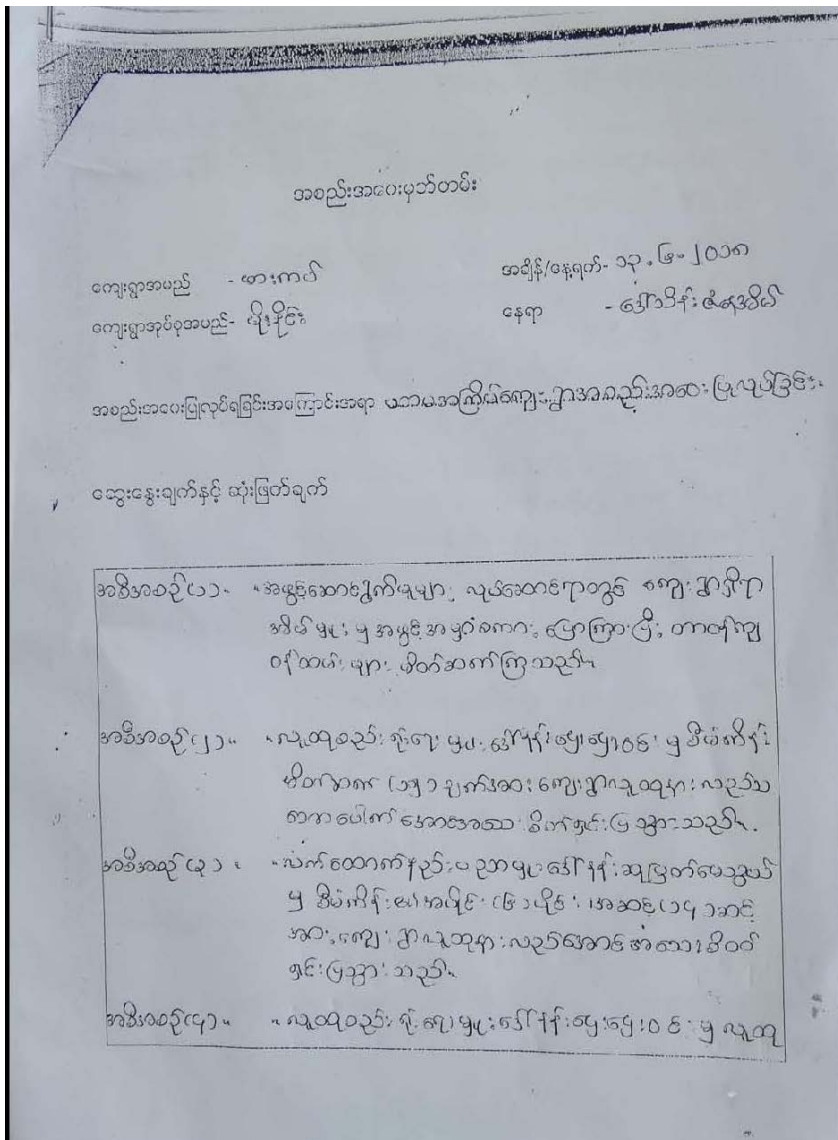 အစည်းအဝေးမှတ်တမ်း
ကျေးရွာအမည် - ဟားကပ်
အချိန်/နေ့ရက်- ၁၃.၆.၂၀၁၈
ကျေးရွာအုပ်စုအမည်- မိုးနိုင်း
နေရာ - ဒေါ်သိန်း ဇံနေအိမ်
အစည်းအဝေးပြုလုပ်ရခြင်းအကြောင်းအရာ ပထမအကြိမ်ကျေးရွာအစည်းအဝေးပြုလုပ်ခြင်း
ဆွေးနွေးချက်နှင့် ဆုံးဖြတ်ချက်
အစီအစဉ်(၁)။ ။အဖွင့်ဆောင်ရွက်မှုများ လုပ်ဆောင်ရာတွင် ကျေးရွာရှိရာ
အိမ်မှူးမှ အဖွင့်အမှာစကား ပြောကြားပြီး တာဝန်ကျ
ဝန်ထမ်းများ မိတ်ဆက်ကြသည်။
အစီအစဉ်(၂)။ ။လူထုစည်းရုံးရေးမှူး ဒေါ်နန်းမွှေးမွှေးဝင်းမှ စီမံကိန်း
မိတ်ဆက် (၁၅)ချက်အား ကျေးရွာလူထုနားလည်သ
ဘောပေါက်အောင်သေးစိတ်ရှင်းပြသွားသည်။
အစီအစဉ်(၃)။ ။လက်ထောက်နည်းပညာမှူးဒေါ်နန်းဆုမြတ်မေသွယ်
မှ စီမံကိန်း၏အပိုင်း (၆)ပိုင်း၊ အဆင့်(၁၄)ဆင့်
အား ကျေးရွာလူထုနားလည်အောင်အသေးစိတ်
ရှင်းပြသွားသည်။
အစီအစဉ်(၄)။ ။လူထုစည်းရုံးရေးမှူးဒေါ်နန်းမွှေးမွှေးဝင်းမှ လူထု